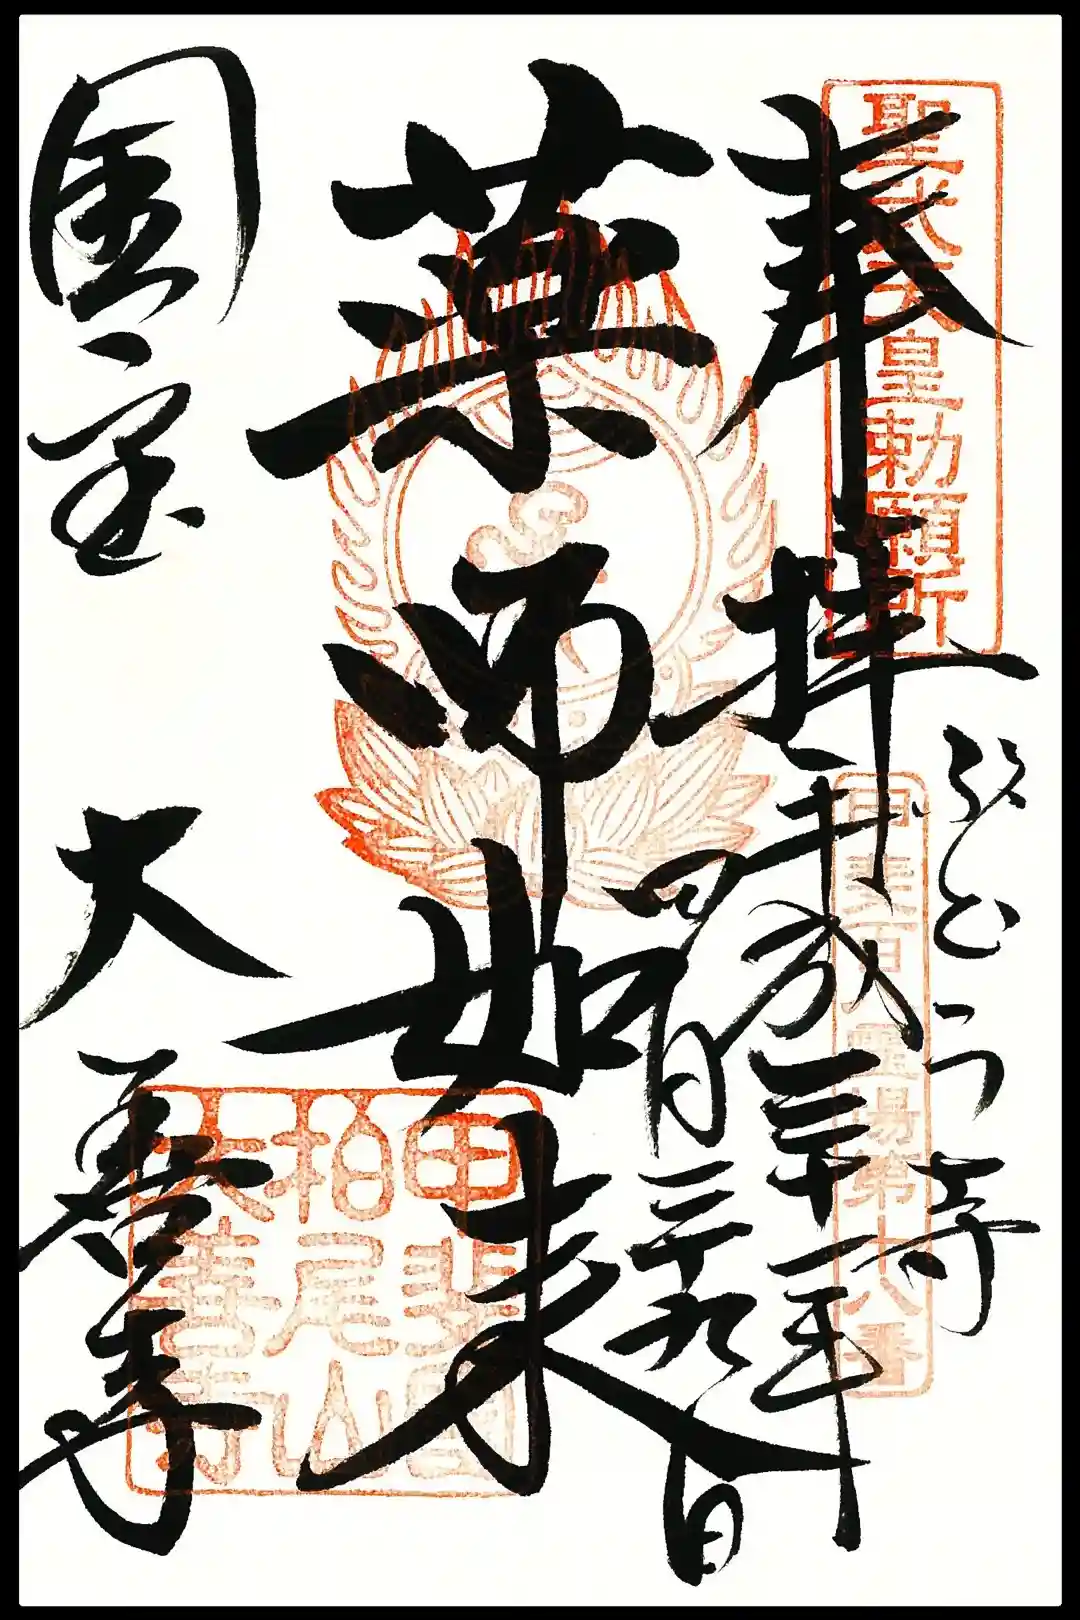 聖武天皇勅願所
奉拝
ぶどう寺
甲斐百八霊場第十八番
平成三十年
四月二十九日
薬師如来
甲斐国
柏尾山
大善寺
国宝
大善寺